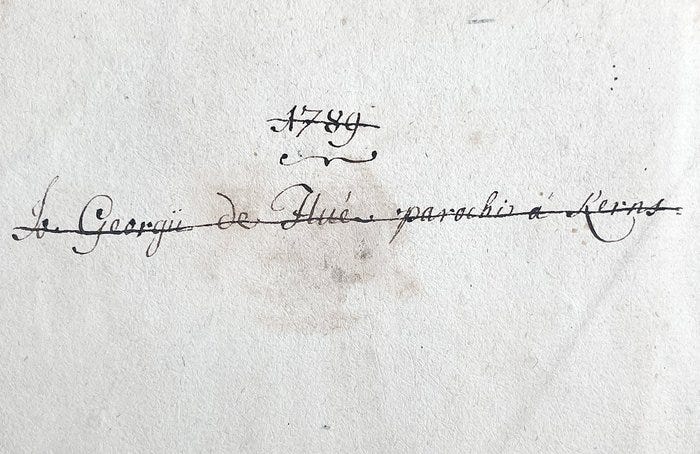 1789
Georgii de Flüe parochi á Kerns.